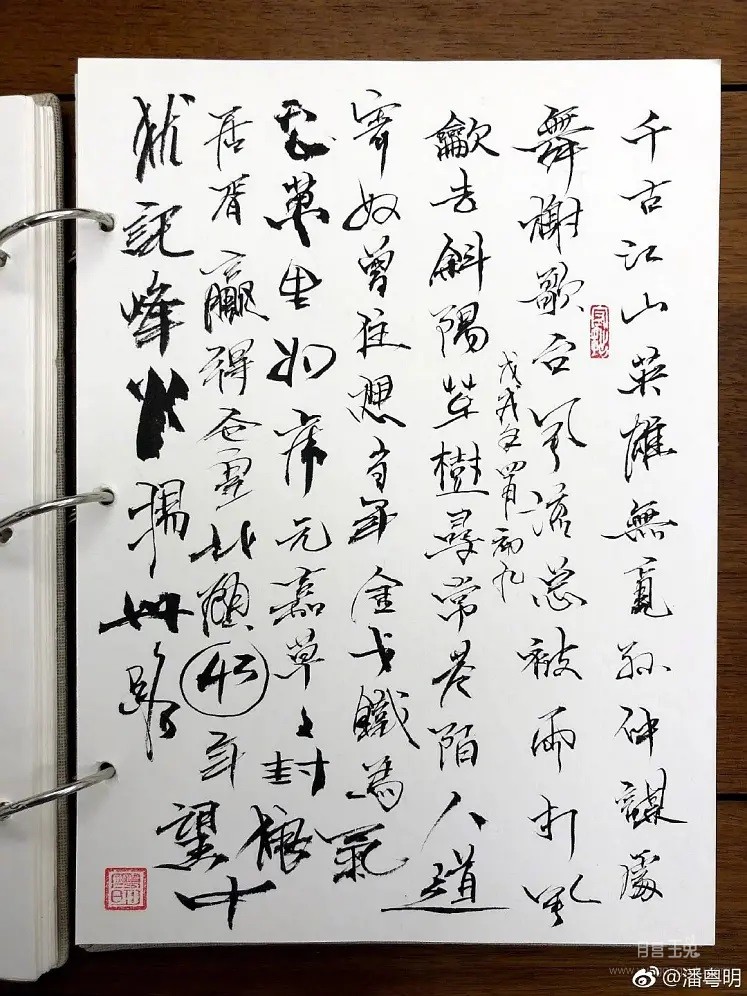 千古江山英雄無覓孫仲謀處
舞榭歌台風流總被雨打風
龡去斜陽草樹尋常巷陌人道
寄奴曾住想当年金戈鐵馬氣
吞萬里如虎元嘉草々封狼
居胥贏得仓皇北顧43年望中
猶記烽火揚州路
戊戌年四月初九
@潘粤明